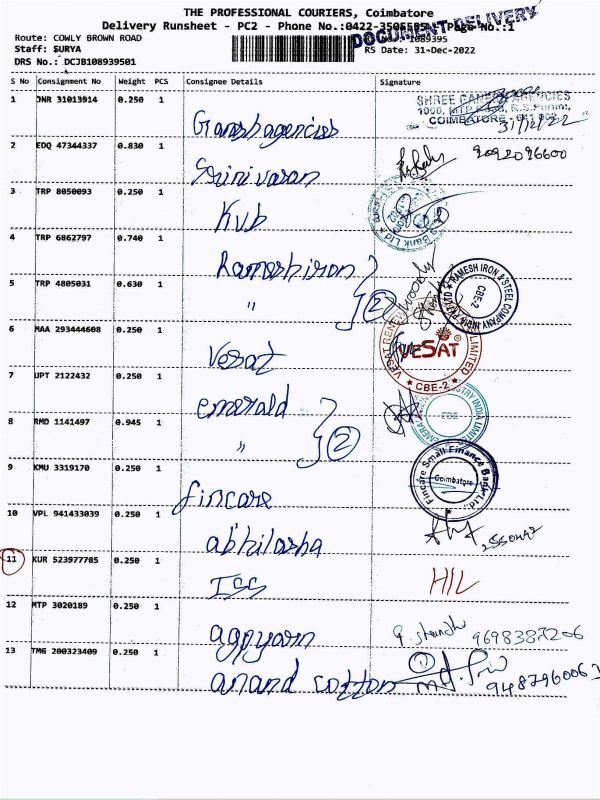 THE PROFESSIONAL COURIERS, Coimbatore
Delivery Runsheet - PC2 - Phone No.:0422-3506585 - Page No.:1
DOCUMENT DELIVERY
Route: COWLY BROWN ROAD
1089395
Staff: SURYA
RS Date: 31-Dec-2022
DRS No.: DCJB108939501
S No Consignment No Weight PCS Consignee Details Signature
1 JNR 31013914 0.250 1
Ganesh agencies
COIMBATORE - 641 002
31/12/22
2 EDQ 47344337 0.830 1
Srinivasan
9092096600
3 TRP 8050093 0.250 1
Kvb
Bank Ltd
4 TRP 6862797 0.740 1
Ramesh iron
5 TRP 4805031 0.630 1
" 2
RAMESH IRON & STEEL COMPANY
CBE-2
6 MAA 293444608 0.250 1
Vesat
VESAT
LIMITED
CBE-2
7 UPT 2122432 0.250 1
emerald
8 RMD 1141497 0.945 1
" 2
INDIA LIMITED
9 KMU 3319170 0.250 1
fincare
Fincare Small Finance Bank Ltd.
Coimbatore
10 VPL 941433039 0.250 1
abhilasha
11 KUR 523977785 0.250 1
ISS
HIL
12 MTP 3020189 0.250 1
agpyarn
9698387206
13 TMG 200323409 0.250 1
anand cotton
1